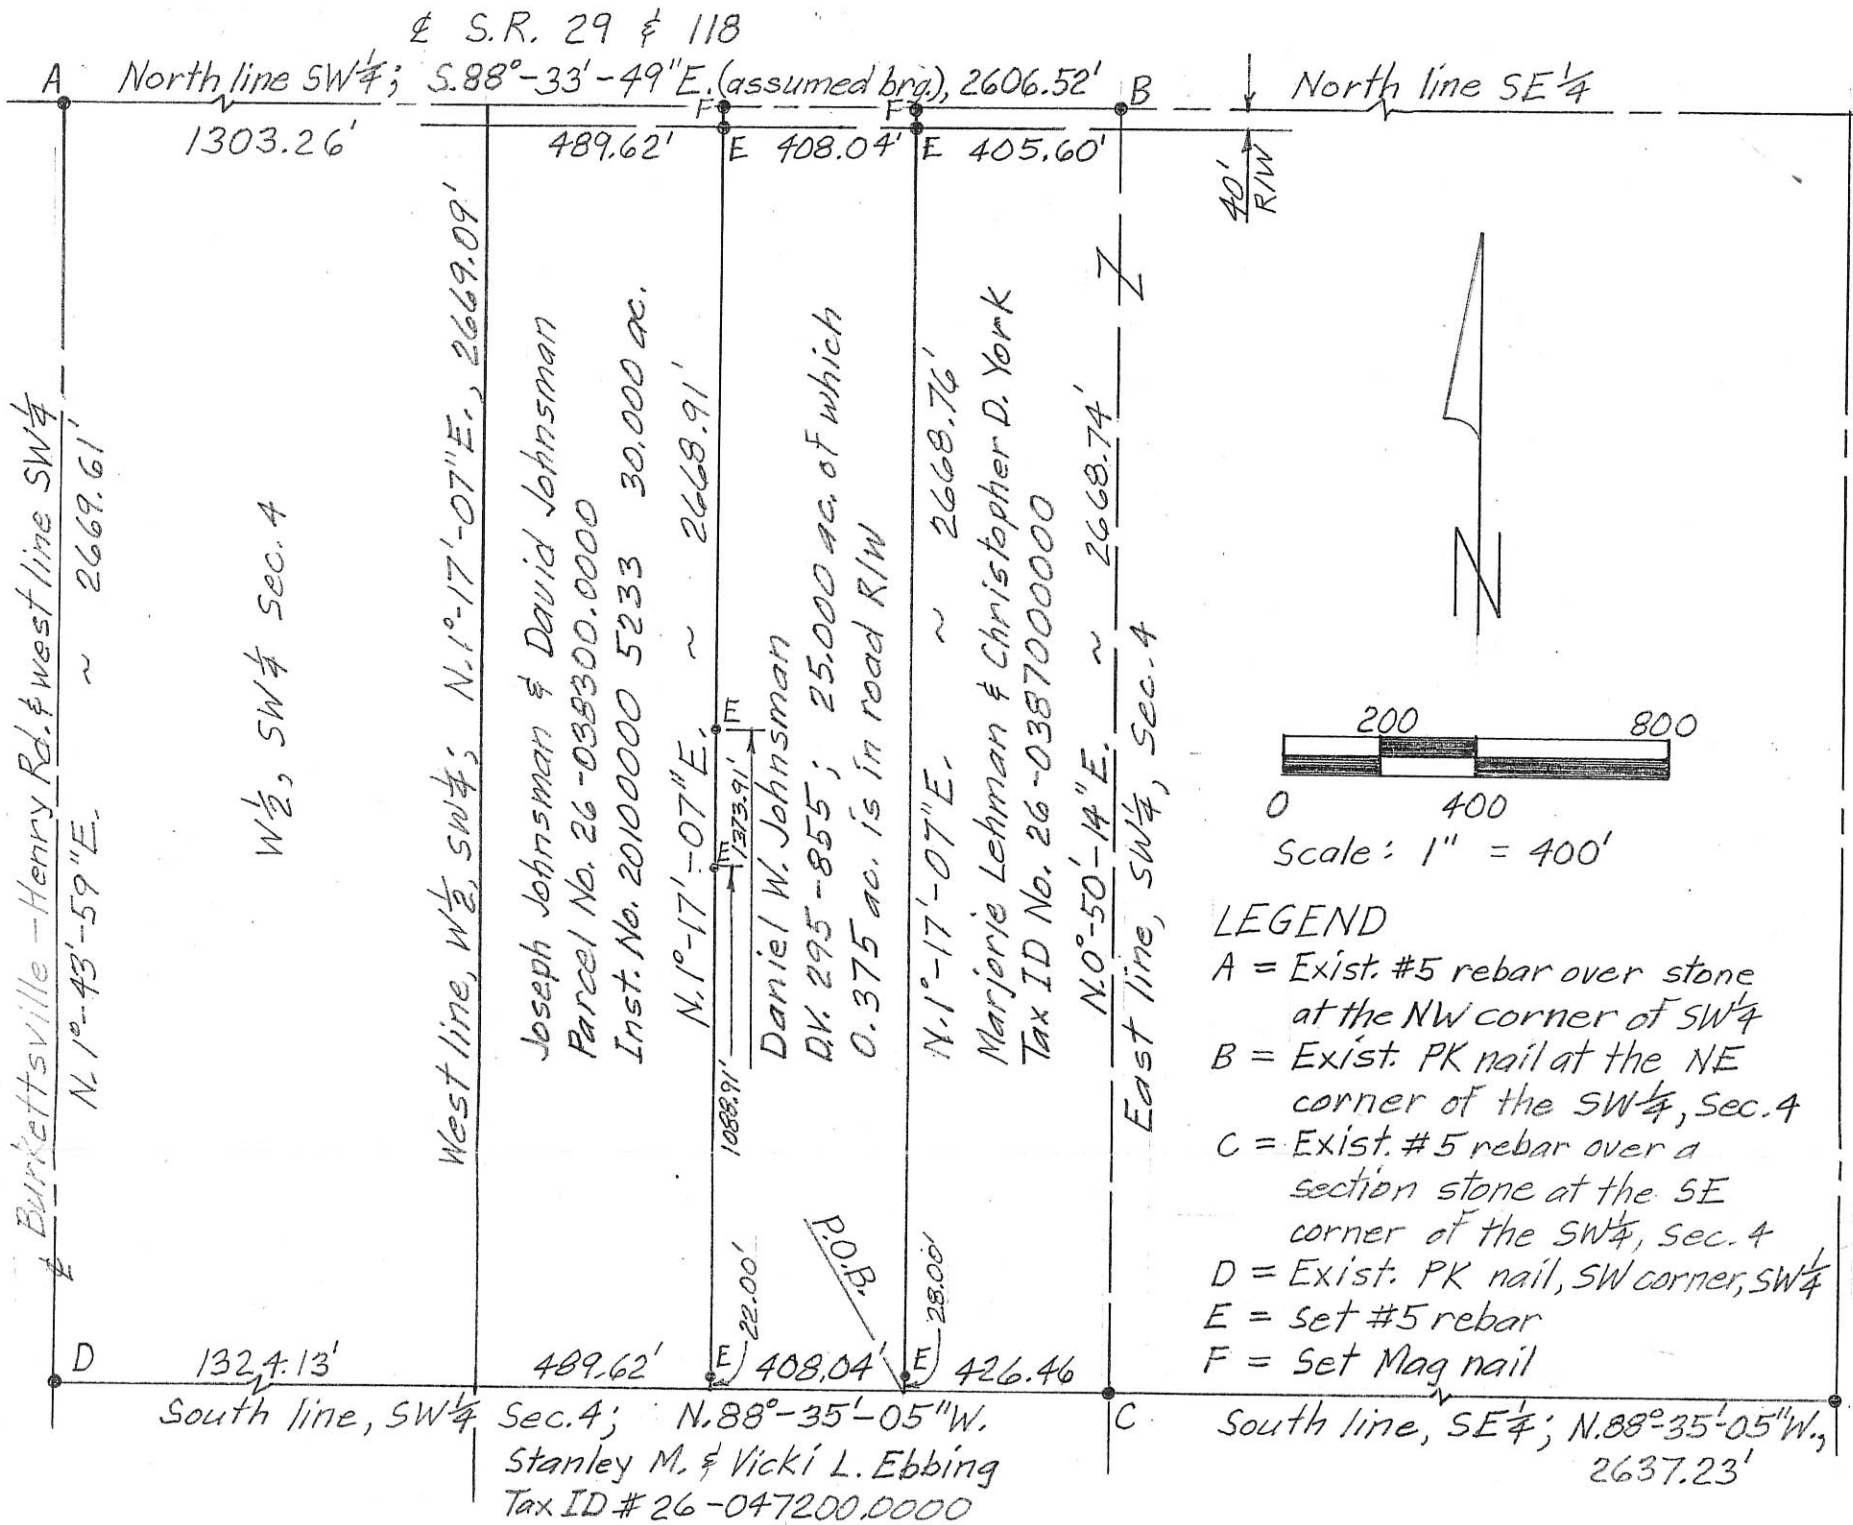 ℄ S.R. 29 & 118
A North line SW¼; S.88°-33'-49"E.(assumed brg.), 2606.52' B North line SE¼
F F
1303.26' 489.62' E 408.04' E 405.60'
40'
R/W
℄ Burkettsville-Henry Rd. & west line SW¼
N. 1°-43'-59"E. ~ 2669.61'
W½, SW¼ Sec. 4
West line, W½, SW¼; N.1°-17'-07"E., 2669.09'
Joseph Johnsman & David Johnsman
Parcel No. 26-038300.0000
Inst. No. 201000000 5233 30.000 ac.
N.1°-17'-07"E. ~ 2668.91'
E
E
1373.91'
1088.91'
Daniel W. Johnsman
D.V. 295-855; 25.000 ac. of which
0.375 ac. is in road R/W
N.1°-17'-07"E. ~ 2668.76'
Marjorie Lehman & Christopher D. York
Tax ID No. 26-0387000000
N.0°-50'-14"E. ~ 2668.74'
East line, SW¼, Sec. 4
Z
N
200 800
0 400
Scale: 1" = 400'
LEGEND
A = Exist. #5 rebar over stone
at the NW corner of SW¼
B = Exist. PK nail at the NE
corner of the SW¼, Sec. 4
C = Exist. #5 rebar over a
section stone at the SE
corner of the SW¼, Sec. 4
D = Exist. PK nail, SW corner, SW¼
E = Set #5 rebar
F = Set Mag nail
P.O.B.
22.00'
28.00'
D 1324.13' 489.62' E 408.04' E 426.46
South line, SW¼ Sec. 4; N.88°-35'-05"W. C South line, SE¼; N.88°-35'-05"W.,
2637.23'
Stanley M. & Vicki L. Ebbing
Tax ID # 26-047200.0000